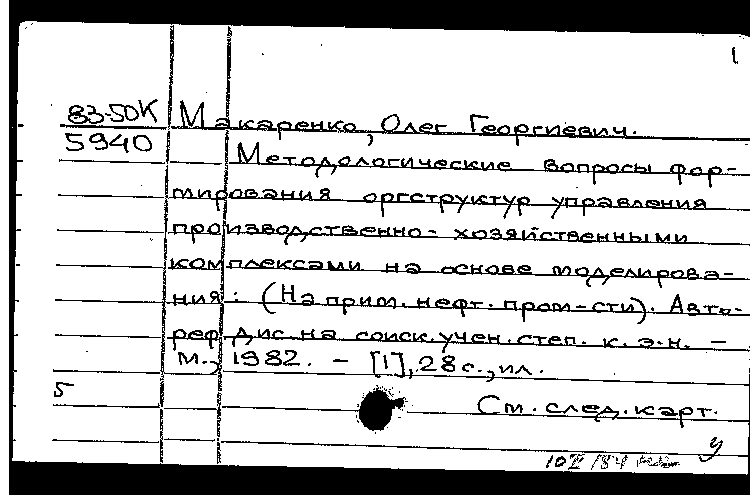 1
83-50К Макаренко, Олег Георгиевич.
5940 Методологические вопросы фор-
мирования оргструктур управления
производственно-хозяйственными
комплексами на основе моделирова-
ния: (На прим. нефт. пром-сти). Авто-
реф. дис. на соиск. учен. степ. к. э. н. –
М., 1982. – [1], 28 с., ил.
5
См. след. карт.
у
10 /84